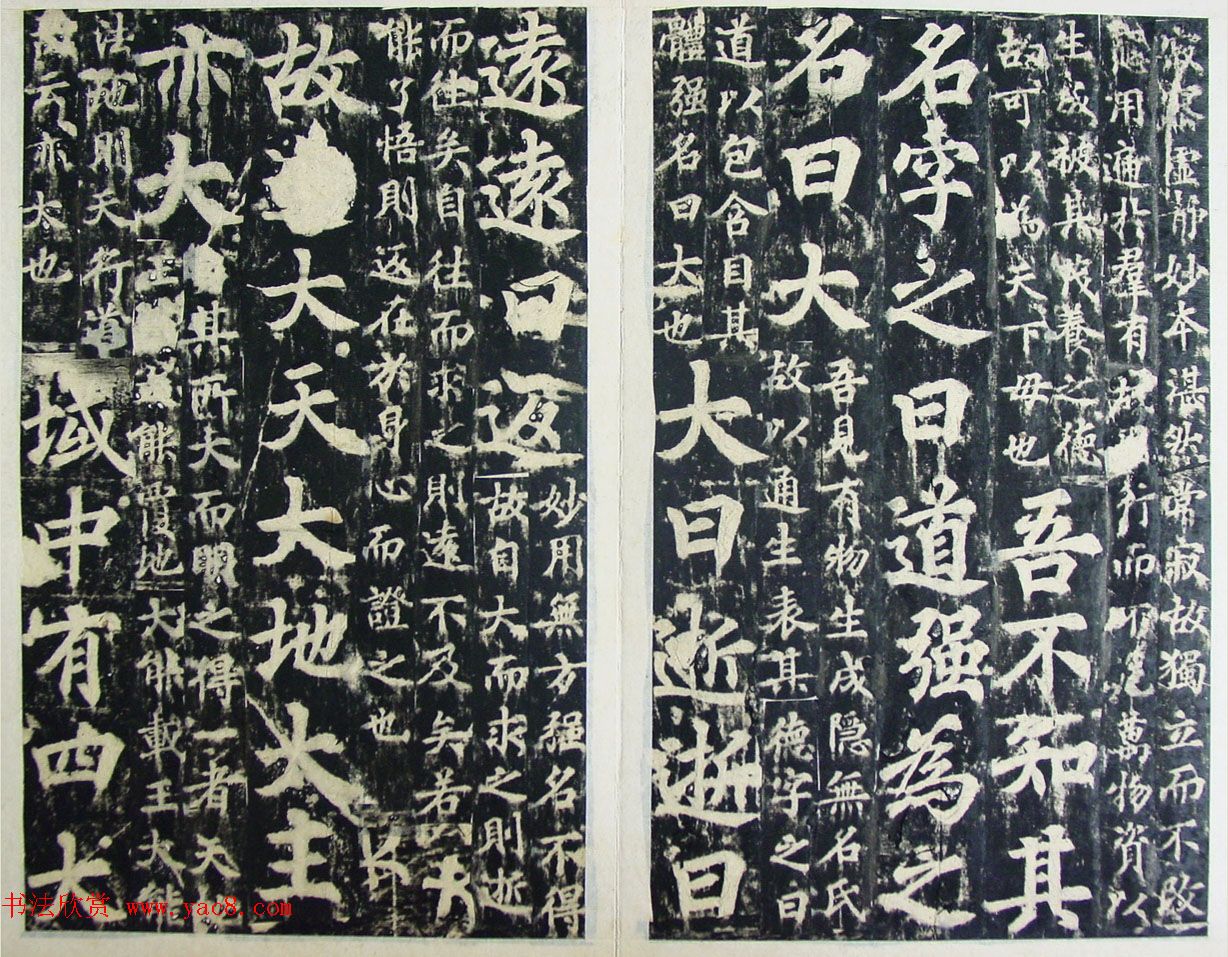 寥虛靜妙本湛然常寂故獨立而不改
應用遍於羣有故行而不危萬物資以
生成被其茂養之德
故可以為天下母也
吾不知其
名字之曰道强為之
名曰大
吾見有物生成隱無名氏
故以通生表其德字之曰
道以包含目其
體强名曰大也
大曰逝逝曰
遠遠曰返
妙用無方强名不得
故自大而求之則逝
而往矣自往而求之則遠不及矣若
能了悟則返在於身心而證之也
故大天大地大王
亦大
其所大而明之得一者天
王能覆地大能載王大能
法地則天行道
故云亦大也
域中有四大
书法欣赏 www.yac8.com